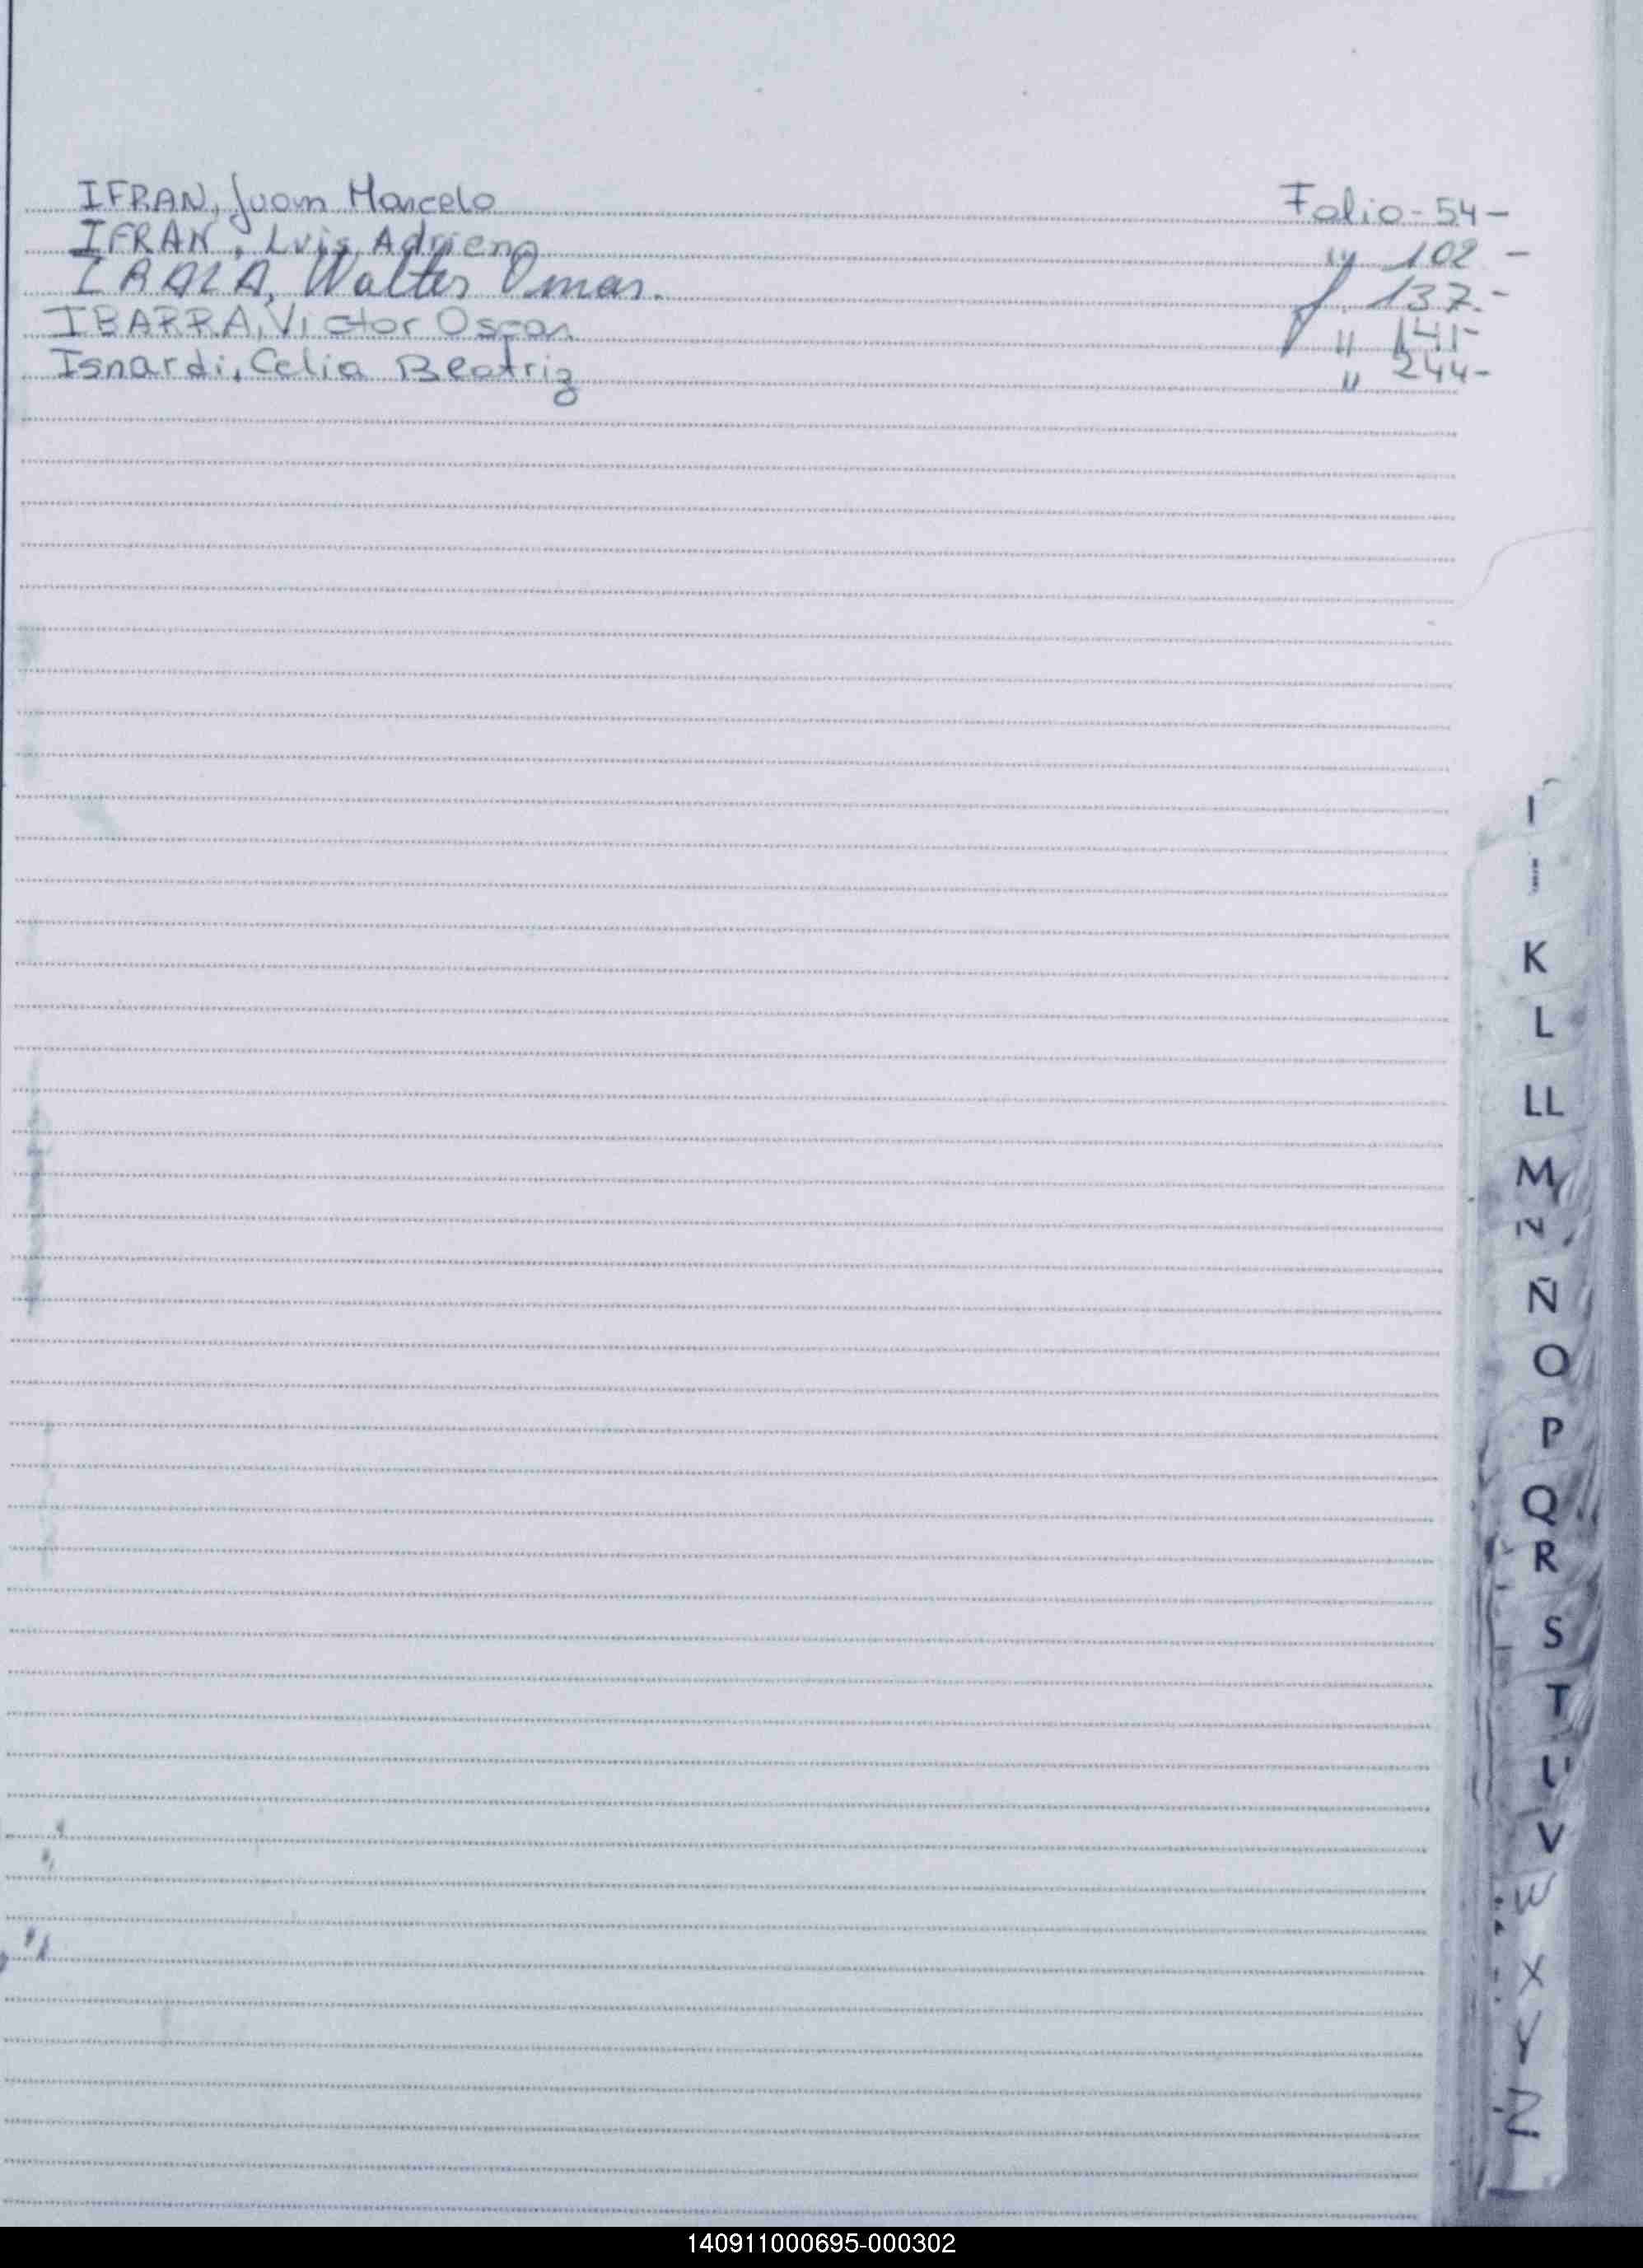 IFRAN, Juan Marcelo Folio - 54 -
IFRAN, Luis Adriano " 102 -
Walter Omar. 137.-
IBARRA, Victor Oscar " 141-
Isnardi, Celia Beatriz " 244-
I
K
L
LL
M
N
Ñ
O
P
Q
R
S
T
U
V
W
X
Y
Z
140911000695-000302